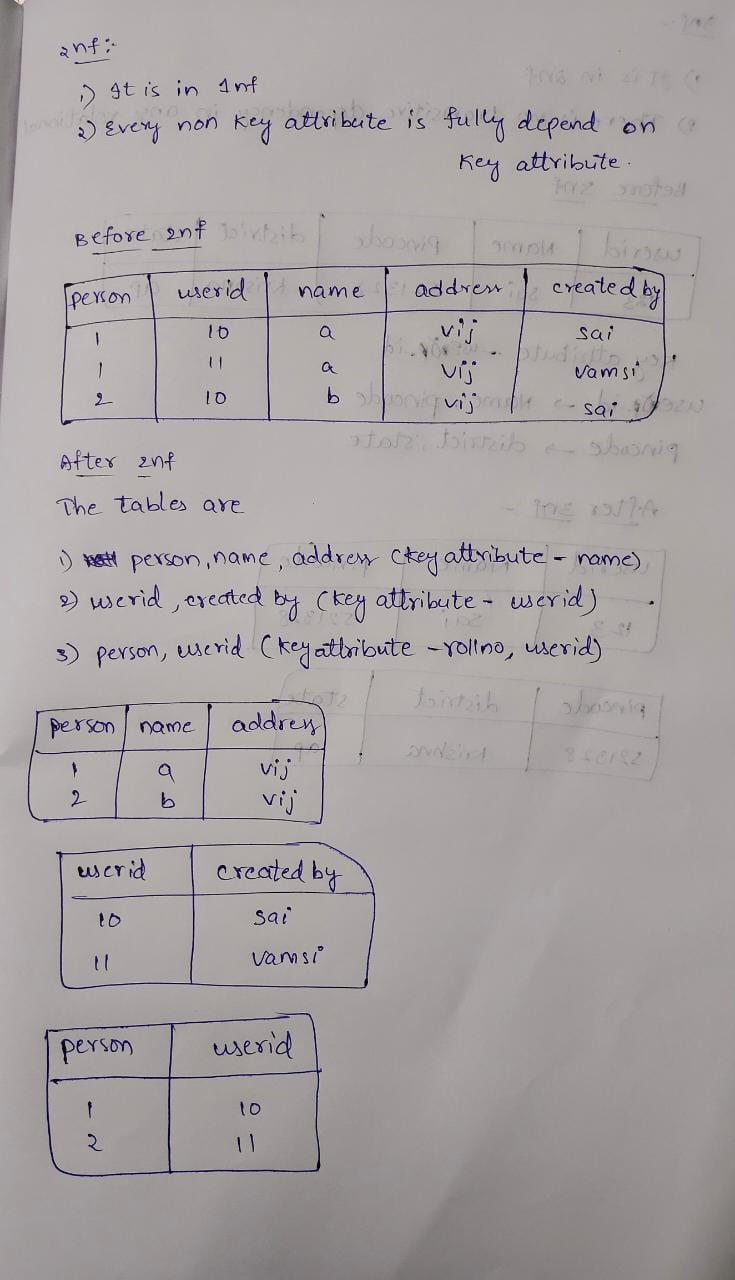 2nf:-
1) It is in 1nf
2) Every non key attribute is fully depend on
key attribute.
Before 2nf
person userid name address created by
1 10 a vij sai
1 11 a vij vamsi
2 10 b vij sai
After 2nf
The tables are
1) person, name, address (key attribute - name)
2) userid, created by (key attribute - userid)
3) person, userid (key attribute - rollno, userid)
person name address
1 a vij
2 b vij
userid created by
10 sai
11 vamsi
person userid
1 10
2 11